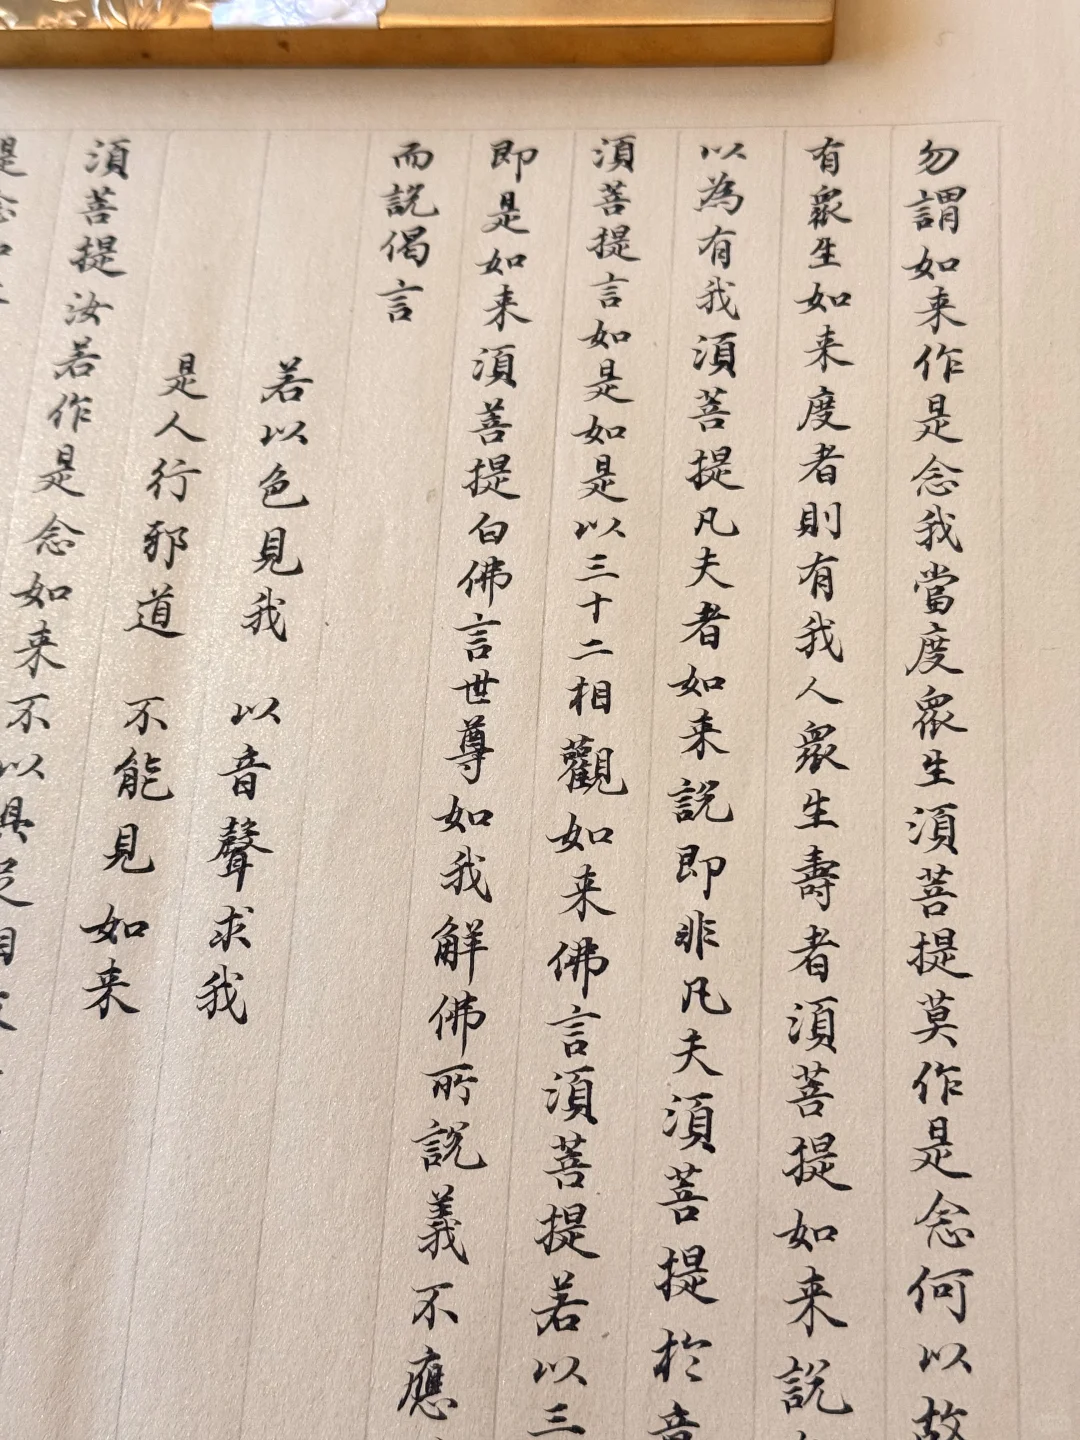 勿謂如来作是念我當度眾生須菩提莫作是念何以故
有眾生如来度者則有我人眾生壽者須菩提如来說
以為有我須菩提凡夫者如来說即非凡夫須菩提於意
須菩提言如是如是以三十二相觀如来佛言須菩提若以三
即是如来須菩提白佛言世尊如我解佛所說義不應
而說偈言
若以色見我 以音聲求我
是人行邪道 不能見如来
須菩提汝若作是念如来不以具足相故